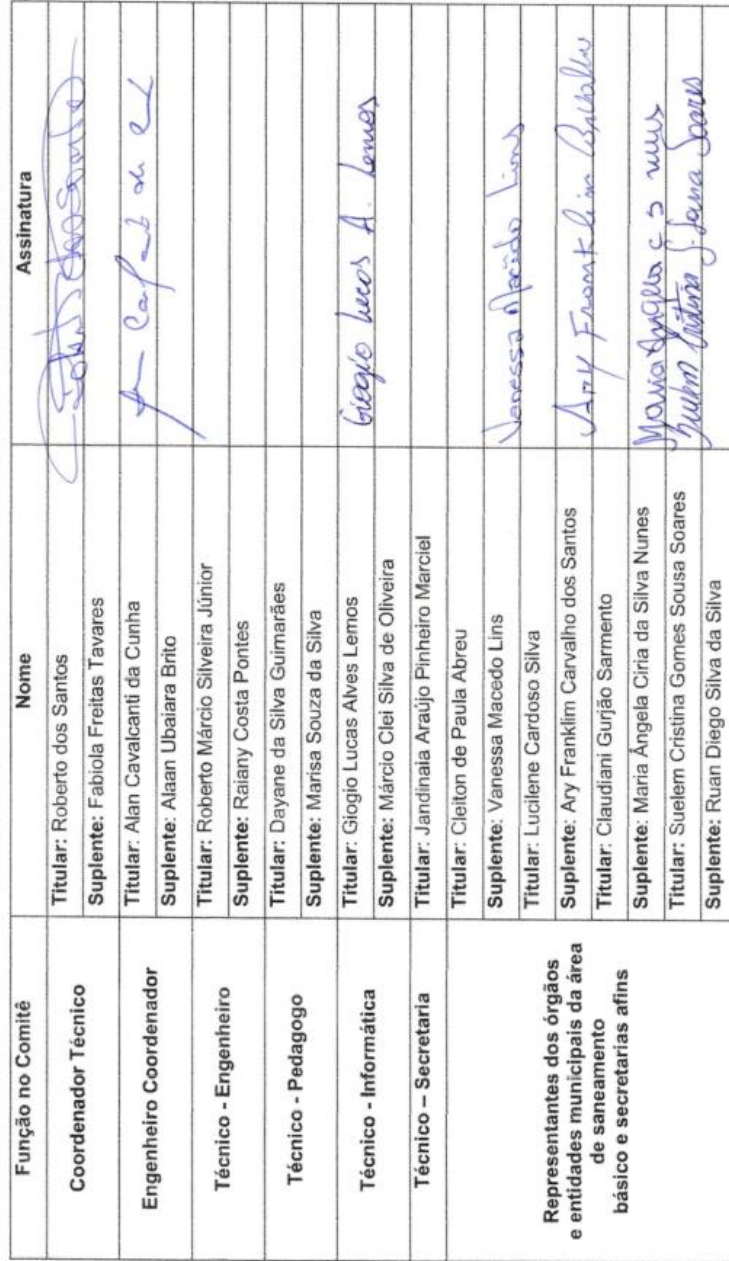 Função no Comitê Nome Assinatura
Coordenador Técnico
Titular: Roberto dos Santos
Suplente: Fabiola Freitas Tavares
Engenheiro Coordenador
Titular: Alan Cavalcanti da Cunha
Suplente: Alaan Ubaiara Brito
Técnico - Engenheiro
Titular: Roberto Márcio Silveira Júnior
Suplente: Raiany Costa Pontes
Técnico - Pedagogo
Titular: Dayane da Silva Guimarães
Suplente: Marisa Souza da Silva
Técnico - Informática
Titular: Giogio Lucas Alves Lemos Giogio Lucas A. Lemos
Suplente: Márcio Clei Silva de Oliveira
Técnico – Secretaria
Titular: Jandinaia Araújo Pinheiro Marciel
Representantes dos órgãos
e entidades municipais da área
de saneamento
básico e secretarias afins
Titular: Cleiton de Paula Abreu
Suplente: Vanessa Macedo Lins Vanessa Macêdo Lins
Titular: Lucilene Cardoso Silva
Suplente: Ary Franklim Carvalho dos Santos Ary Franklim Carvalho
Titular: Claudiani Gurjão Sarmento
Suplente: Maria Ângela Ciria da Silva Nunes Maria Angela C S Nunes
Titular: Suelem Cristina Gomes Sousa Soares Suelem Cristina G. Sousa Soares
Suplente: Ruan Diego Silva da Silva